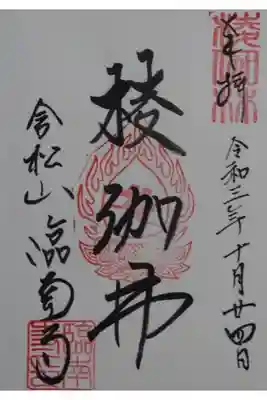 奉拝
令和三年十月廿四日
楞伽林
含松山 臨南寺